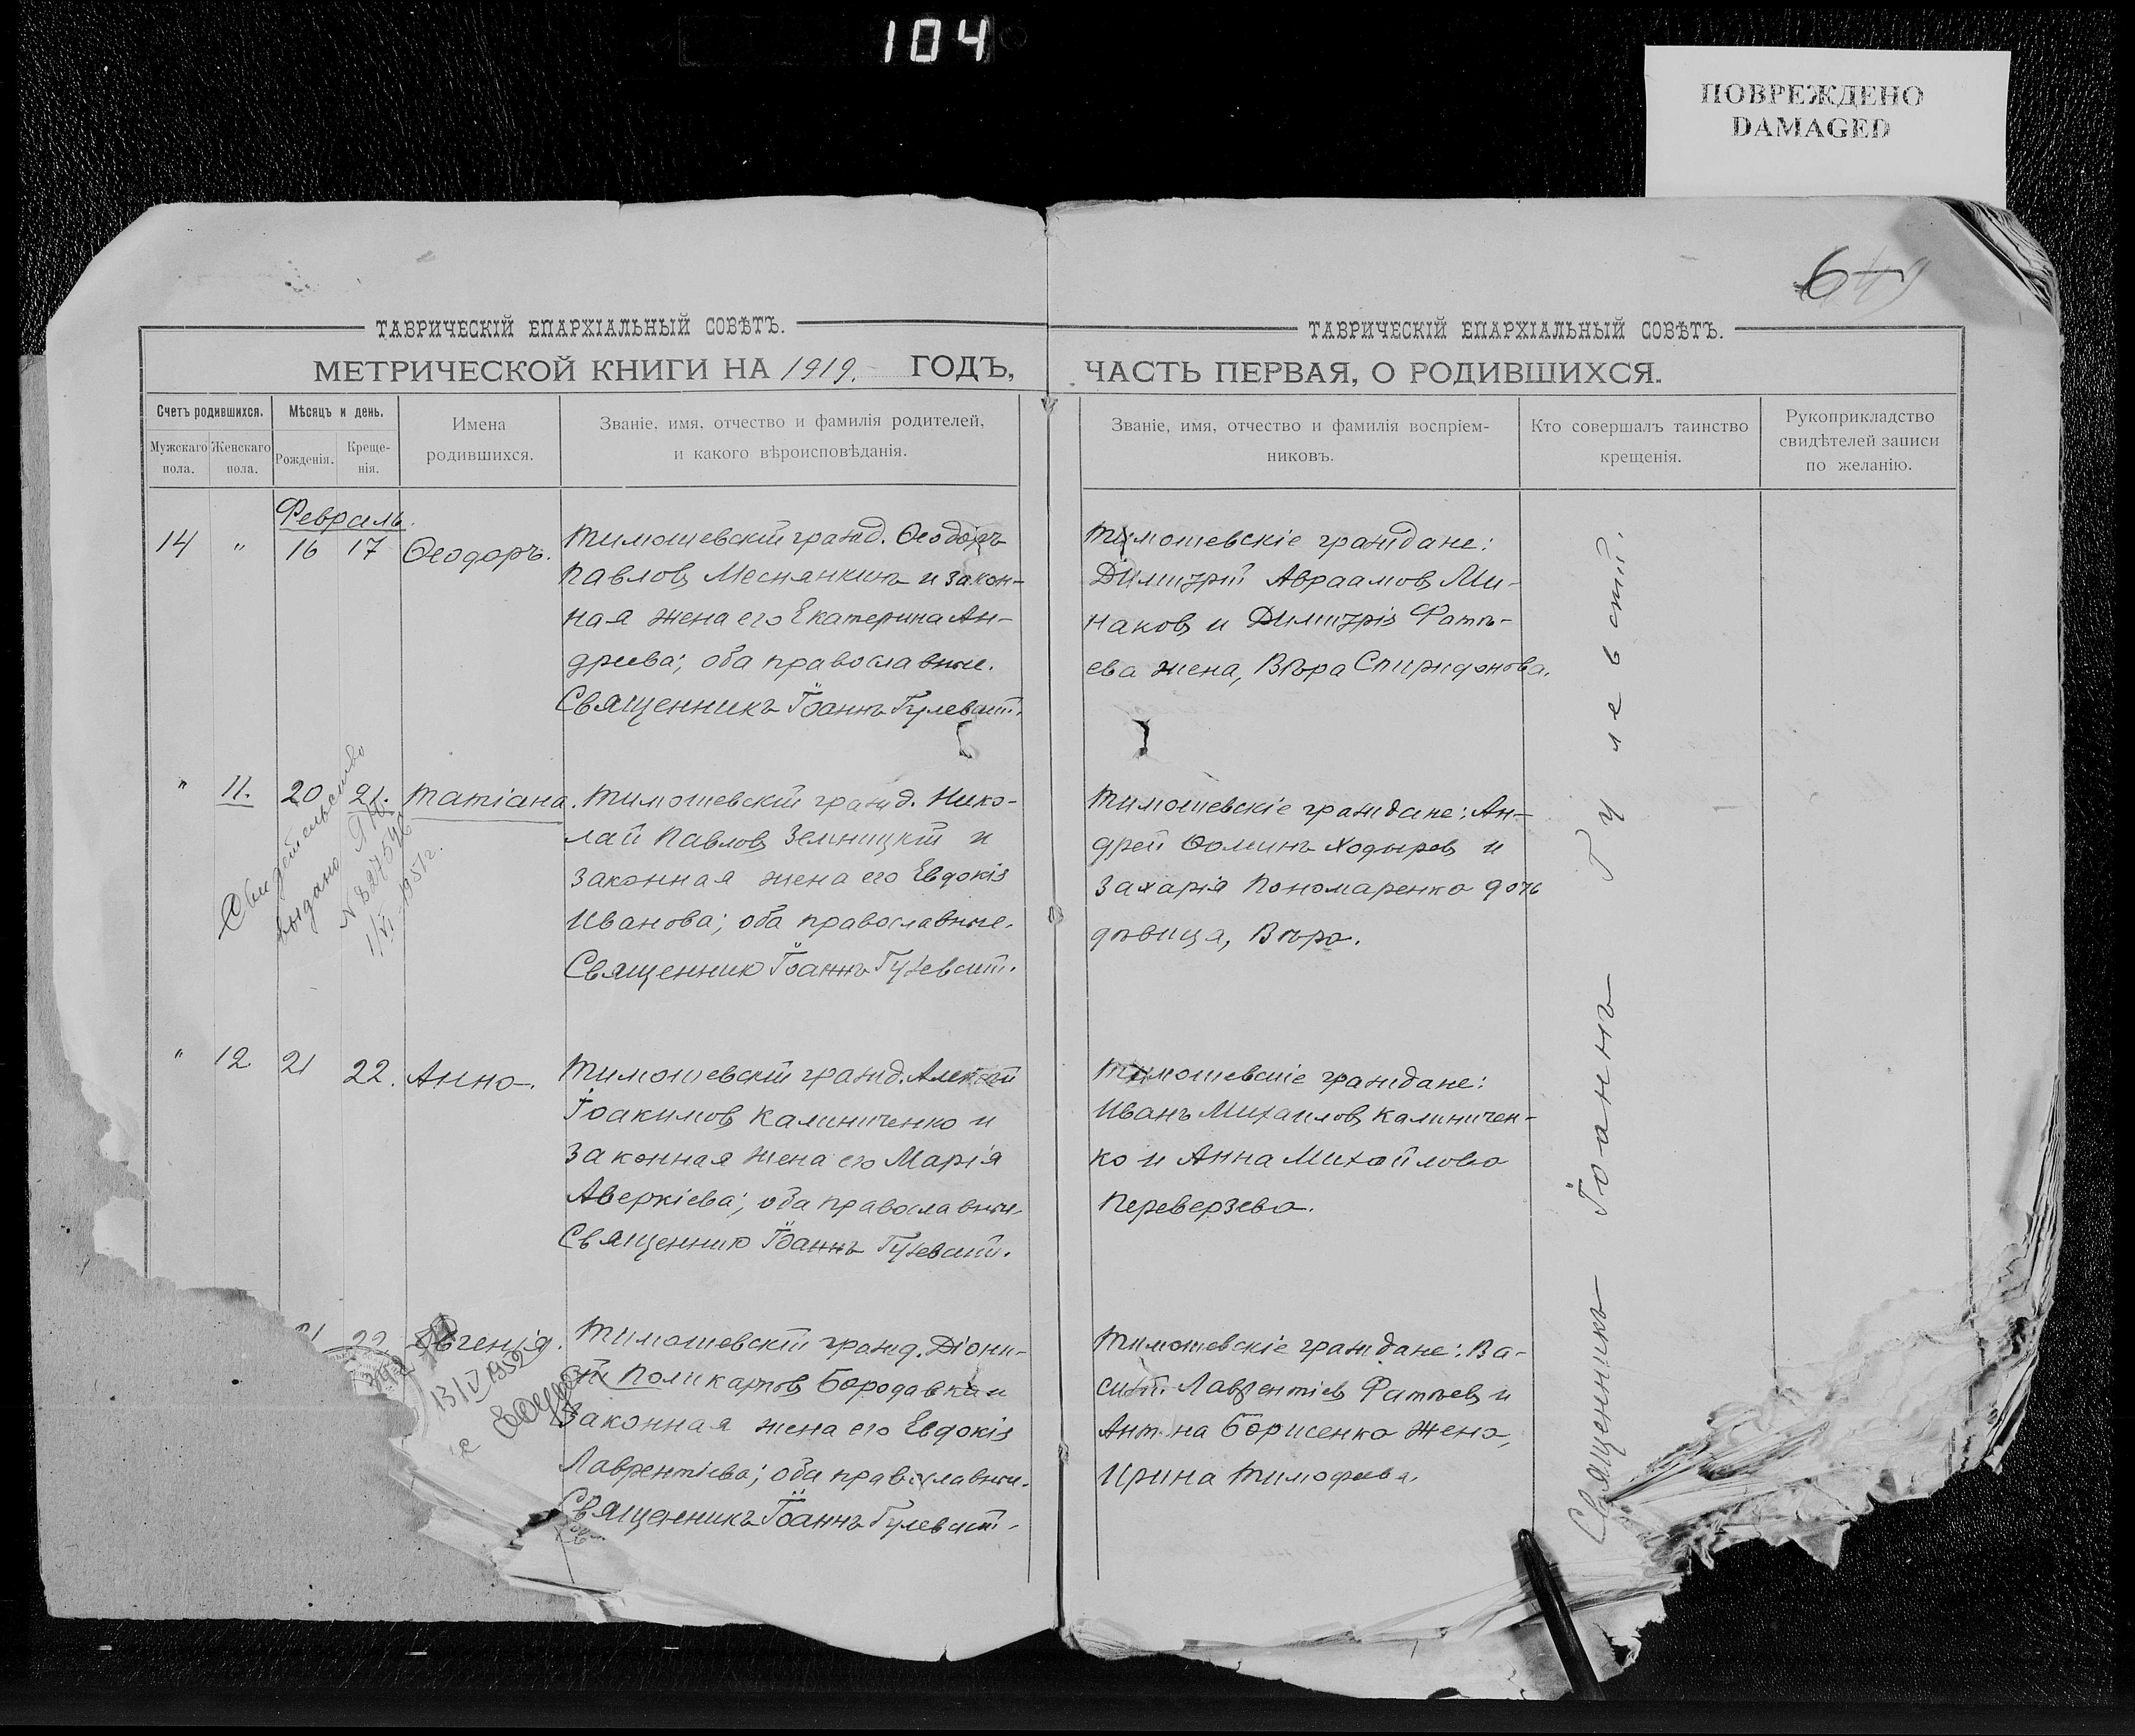 104
ПОВРЕЖДЕНО
DAMAGED
ТАВРИЧЕСКІЙ ЕПАРХІАЛЬНЫЙ СОВѢТЪ.
МЕТРИЧЕСКОЙ КНИГИ НА 1919. ГОДЪ,
Счетъ родившихся.
Мужскаго пола.
Женскаго пола.
Мѣсяцъ и день.
Рожденія.
Креще-
нія.
Имена
родившихся.
Званіе, имя, отчество и фамилія родителей,
и какого вѣроисповѣданія.
Февраль.
14 " 16 17 Ѳеодоръ.
Тимошевскій гражд. Ѳеодоръ
Павловъ Меснянкинъ и закон-
ная жена его Екатерина Ан-
дреева; оба православные.
Священникъ Іоаннъ Гулеватій.
" 11. 20 21. Татіана.
Тимошевскій гражд. Нико-
лай Павловъ Зелницкій и
законная жена его Евдокія
Иванова; оба православные.
Священникъ Іоаннъ Гулеватій.
Свидетельство
выдано
1/VI-1951г.
" 12 21 22. Анна.
Тимошевскій гражд. Алексѣй
Іоакимовъ Калиниченко и
законная жена его Марія
Аверкіева; оба православные.
Священникъ Іоаннъ Гулеватій.
21 22 Евгенія.
Тимошевскій гражд. Діони-
сій Поликарповъ Бородавка и
законная жена его Евдокія
Лаврентіева; оба православные.
Священникъ Іоаннъ Гулеватій.
13/V 1952
ТАВРИЧЕСКІЙ ЕПАРХІАЛЬНЫЙ СОВѢТЪ.
ЧАСТЬ ПЕРВАЯ, О РОДИВШИХСЯ.
Званіе, имя, отчество и фамилія воспріем-
никовъ.
Кто совершалъ таинство
крещенія.
Рукоприкладство
свидѣтелей записи
по желанію.
Тимошевскіе граждане:
Димитрій Авраамовъ Ми-
наковъ и Димитрія Фатѣ-
ева жена, Вѣра Спиридонова.
Тимошевскіе граждане: Ан-
дрей Ѳоминъ Ходыревъ и
Захарія Пономаренко дочь
дѣвица, Вѣра.
Тимошевскіе граждане:
Иванъ Михаиловъ Калиничен-
ко и Анна Михайлова
Переверзева.
Тимошевскіе граждане: Ва-
силій Лаврентіевъ Фатѣевъ и
Антона Борисенко жена,
Ирина Тимофеева.
Священникъ Іоаннъ Гулевстій.